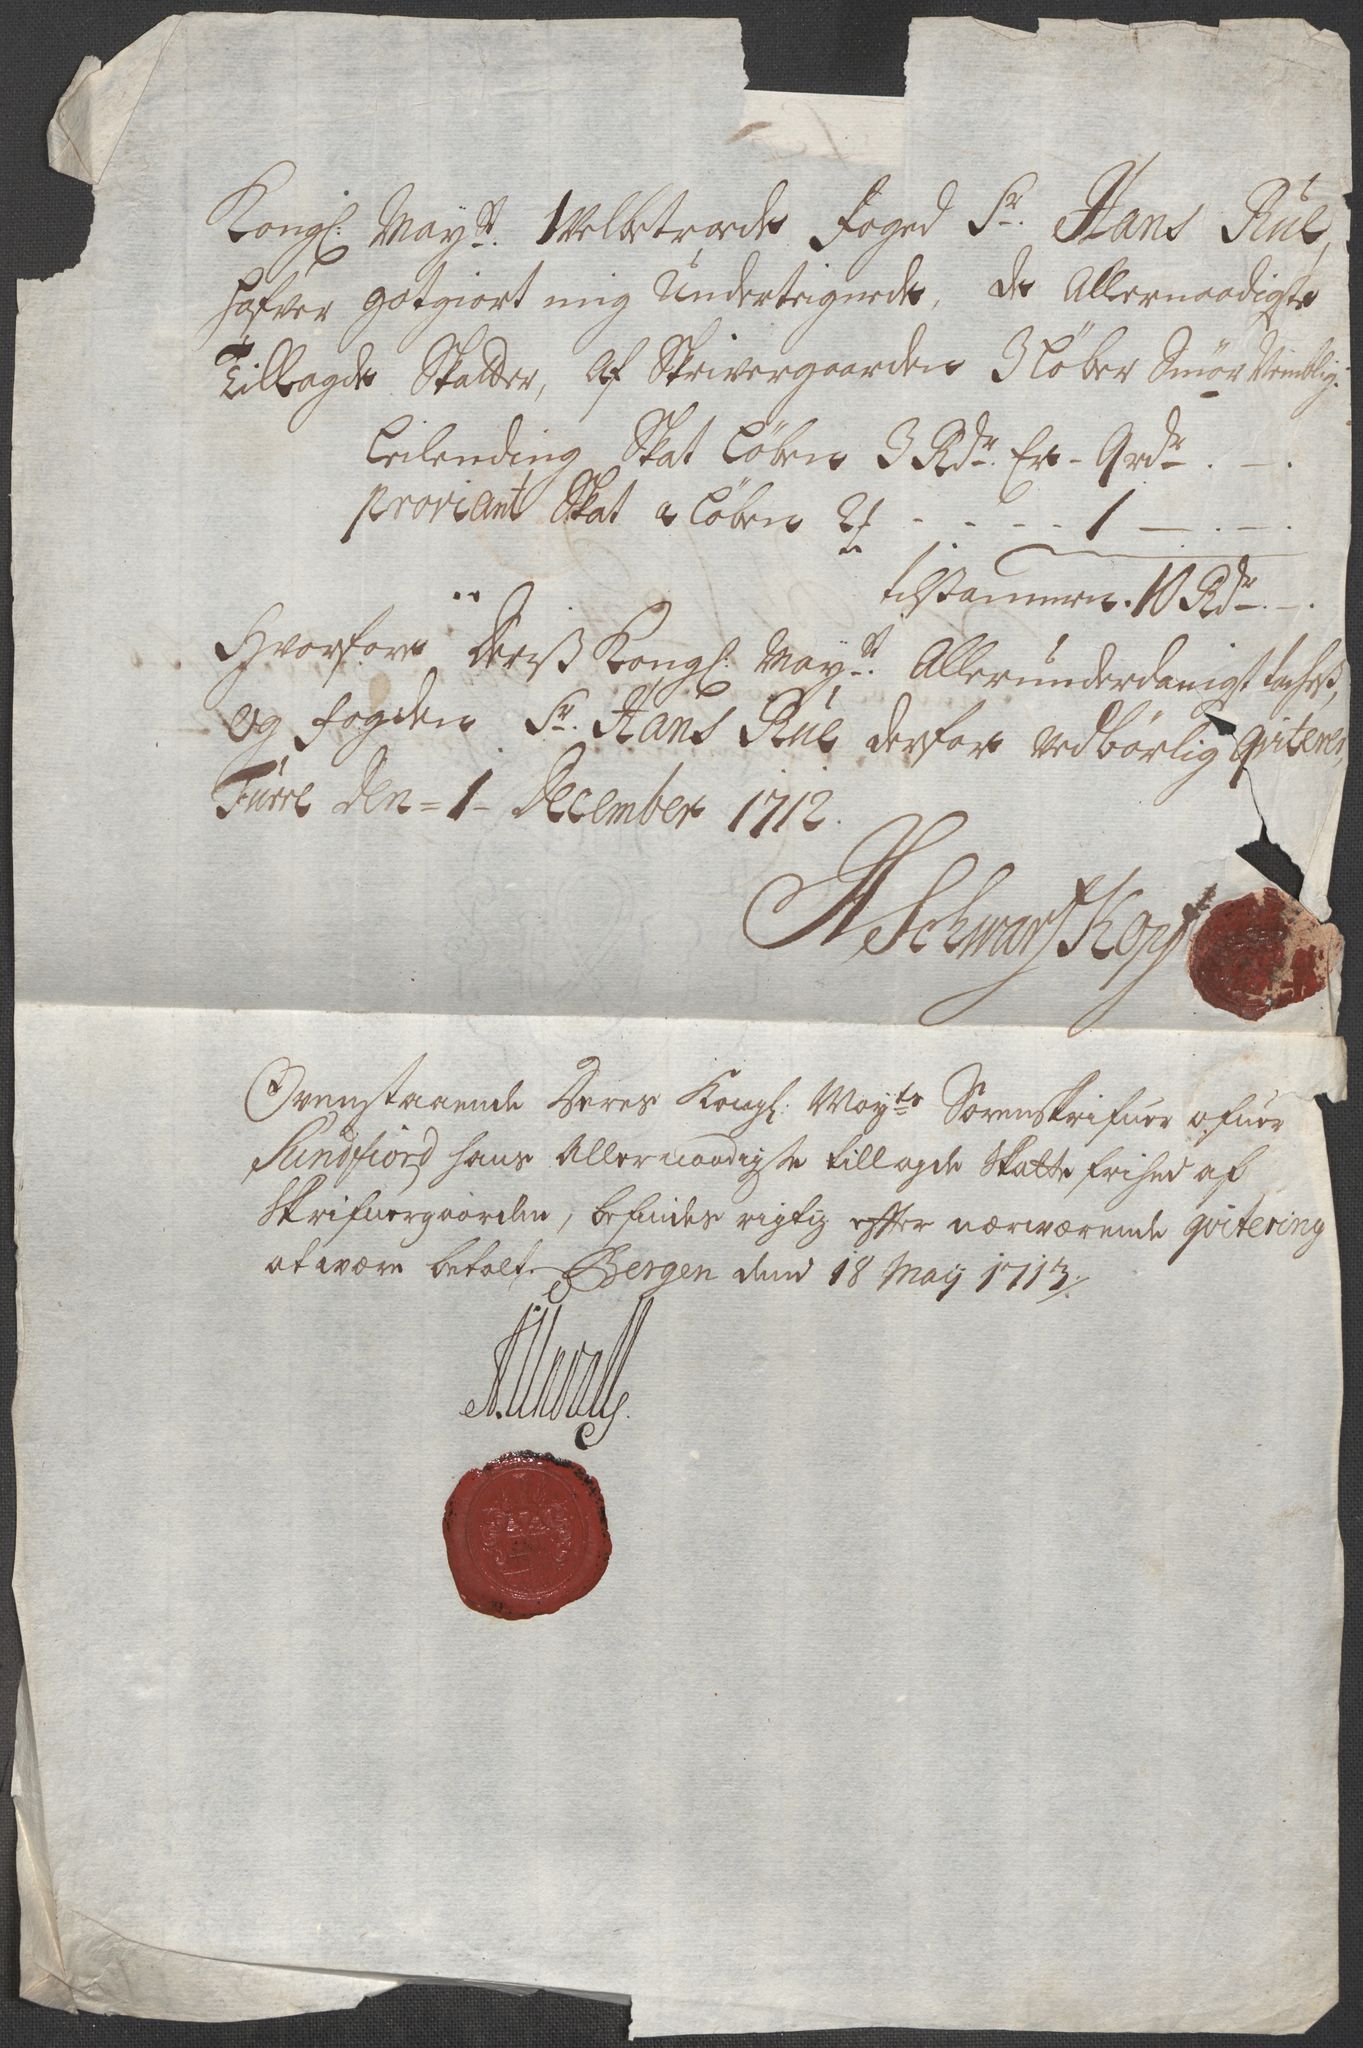 Kongl: Mayst. Welbetroede Foged Sr. Hans Rül,
hafver gotgiort mig Underteignede, de Allernaadigste
Tillagde Skatter, af Skrivergaarden 3 Løber Smör Nemblig:
Leilending Skat Løben 3 Rdr. Er - 9 rdr - . - .
proviant Skat a Løben 2 - - - - 1 - . - .
tilsammen. 10 Rdr. - .
Hvorfore Derß Kongl: Mayst. Allerunderdanigst tacheß,
og fogden Sr. Hans Rül derfor vedbörlig qviteres,
Fürre den = 1 - December 1712.
A Schwartzkopf
Ovenstaaende Deres Kongl: Mayts Sorenskrifuer ofuer
Sundfiord hans Allernaadigste tillagde Skatte frihed af
Skrifuergaarden, befindes rigtig efter nærwærende qvitering
at være betalt. Bergen dend 18 Maij 1713.